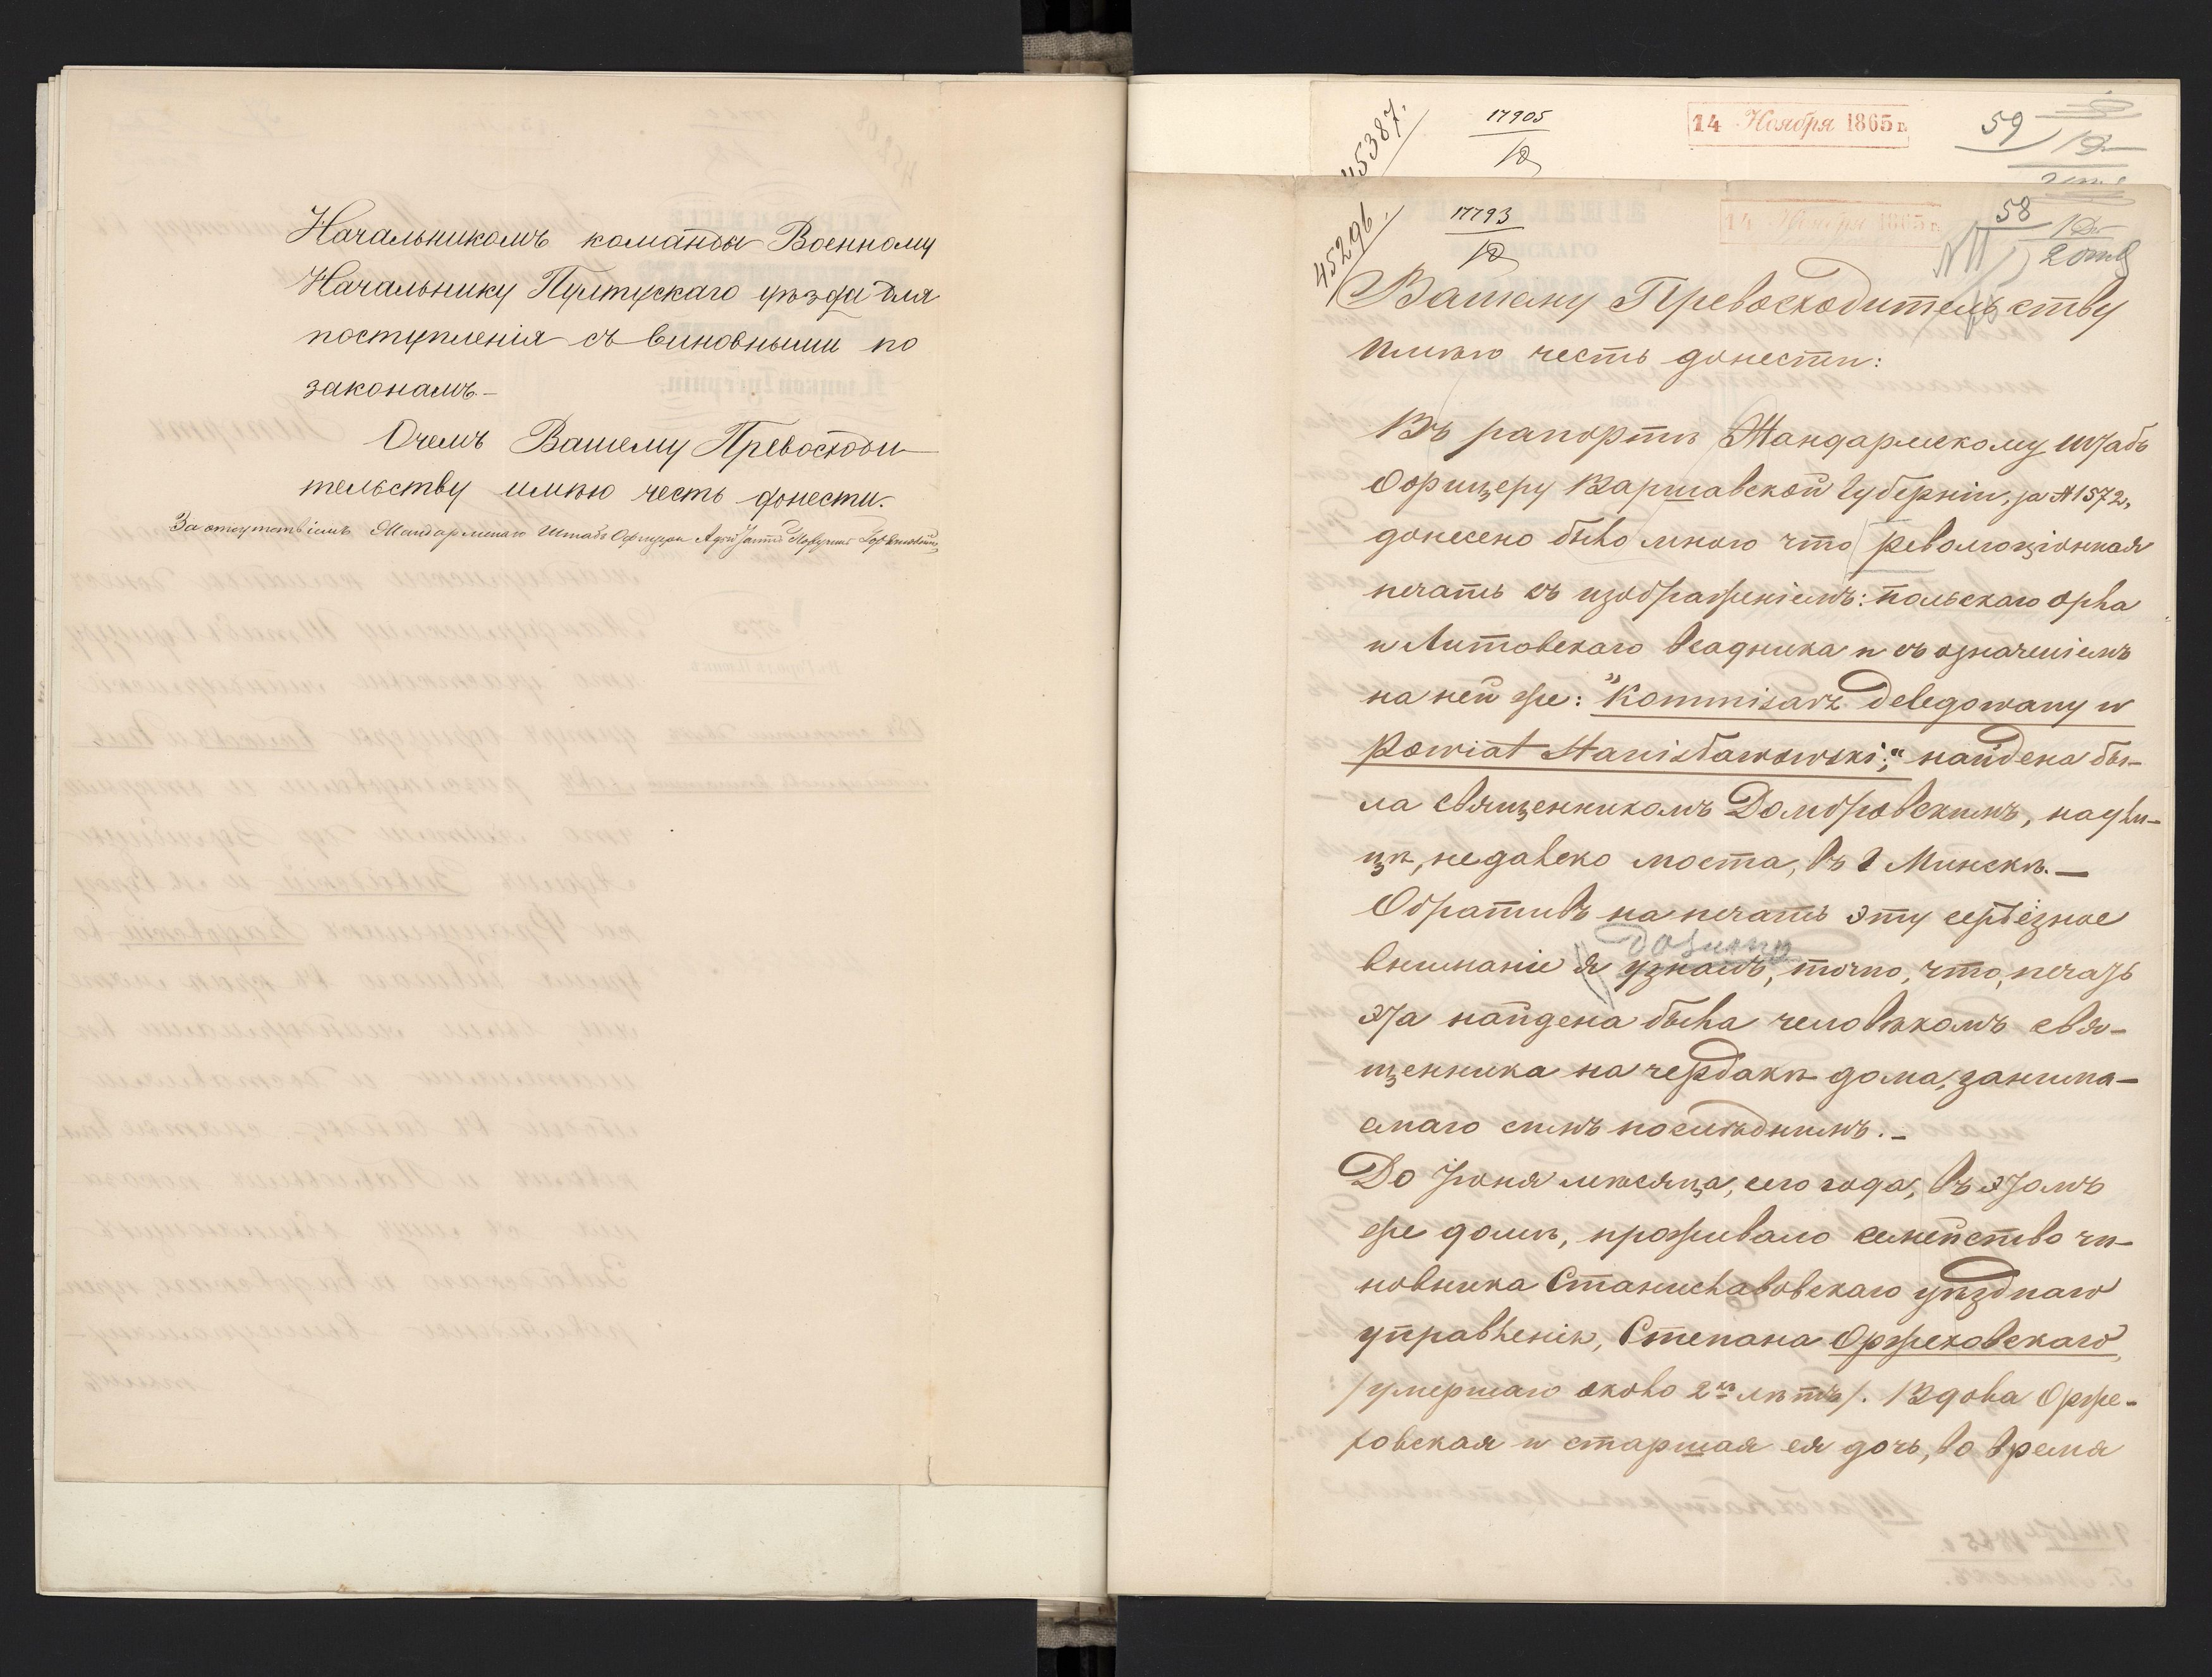 Начальникомъ команды Военному
Начальнику Пултускаго уѣзда для
поступленія съ виновными по
законамъ.-
Очемъ Вашему Превосходи-
тельству имѣю честь донести.
За отсутствіемъ Жандармскаго Штабъ Офицера Адъютантъ Поручикъ
45387.
17905
18
14 Ноября 1865 г.
59
45296.
17793
18
14 Ноября 1865 г.
58
Вашему Превосходительству
имѣю честь донести:
Въ рапортѣ Жандармскому штабъ
Офицеру Варшавской Губерніи, за № 1572,
донесено было мною что революціонная
печать съ изображеніемъ: польскаго орла
и Литовскаго всадника и съ означеніемъ
на ней же: "Kommisarz delegowany w
Powiat Stanisławowski;" найдена бы-
ла священникомъ Домбровскимъ, на ули-
цѣ, недалеко моста, въ г Минскѣ.—
Обративъ на печать эту серьёзное
вниманіе я узналъ, точно, что, печать
эта найдена была человѣкомъ свя-
щенника на чердакѣ дома, занима-
емаго симъ послѣднимъ.-
До Іюня мѣсяца, сего года, въ этомъ
же домѣ, проживало семейство чи-
новника Станиславовскаго уѣзднаго
управленія, Степана Оржеховскаго
/умершаго около 2хъ лѣтъ/. Вдова Орже-
ховская и старшая ея дочь, во время